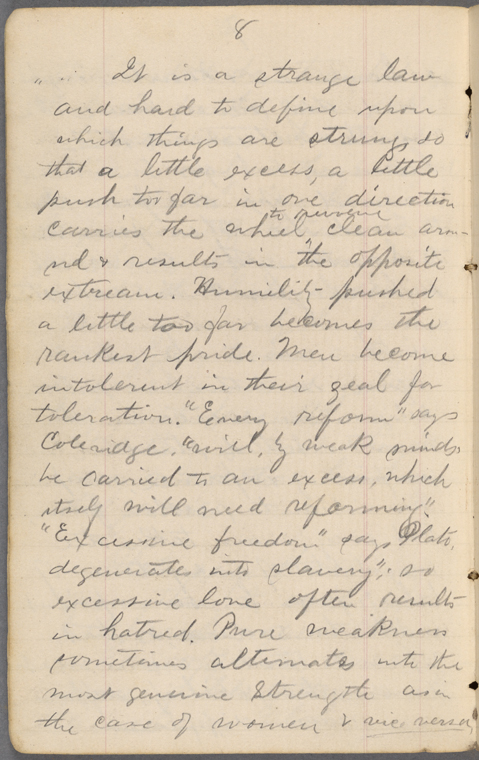 8
" .. It is a strange law
and hard to define upon
which things are strung, so
that a little excess, a little
push too far in one direction
to
carries the wheel clean arou-
nd & results in the opposite
extream. Humility pushed
a little too far becomes the
rankest pride. Men become
intolerent in their zeal for
toleration. "Every reform" says
Coleridge, "will, by weak minds
be carried to an excess, which
itself will need reforming".
"Excessive freedom" says Plato,
degenerates into slavery"; so
excessive love often results
in hatred. Pure weakness
sometimes alternates with the
most genuine strength as in
the case of women & vice versa,